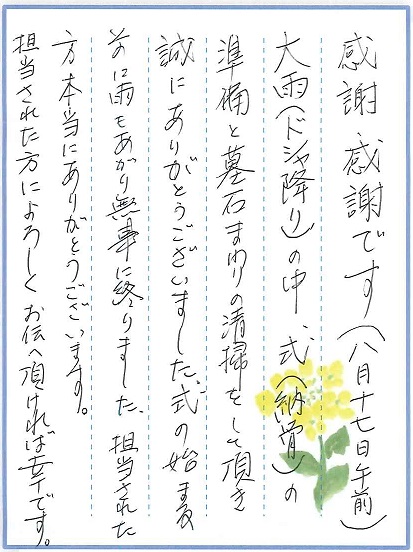 感謝 感謝です(八月十七日午前)
大雨(ドシャ降り)の中、式(納骨)の
準備と墓石まわりの清掃をして頂き
誠にありがとうございました。式の始まる
前に雨もあがり無事に終りました。担当された
方本当にありがとうございます。
担当された方によろしくお伝へ頂ければ幸です。